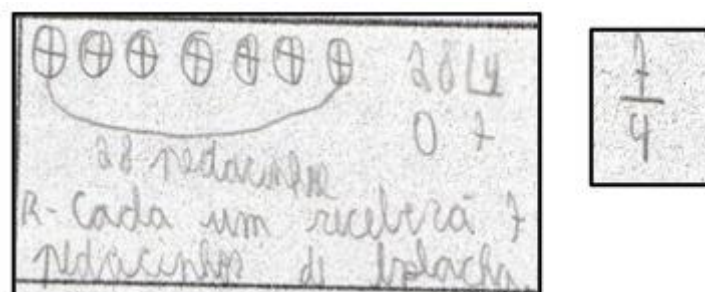 28 4
0 7
28 pedacinhos
R- Cada um receberá 7
pedacinhos de bolacha.
7
4